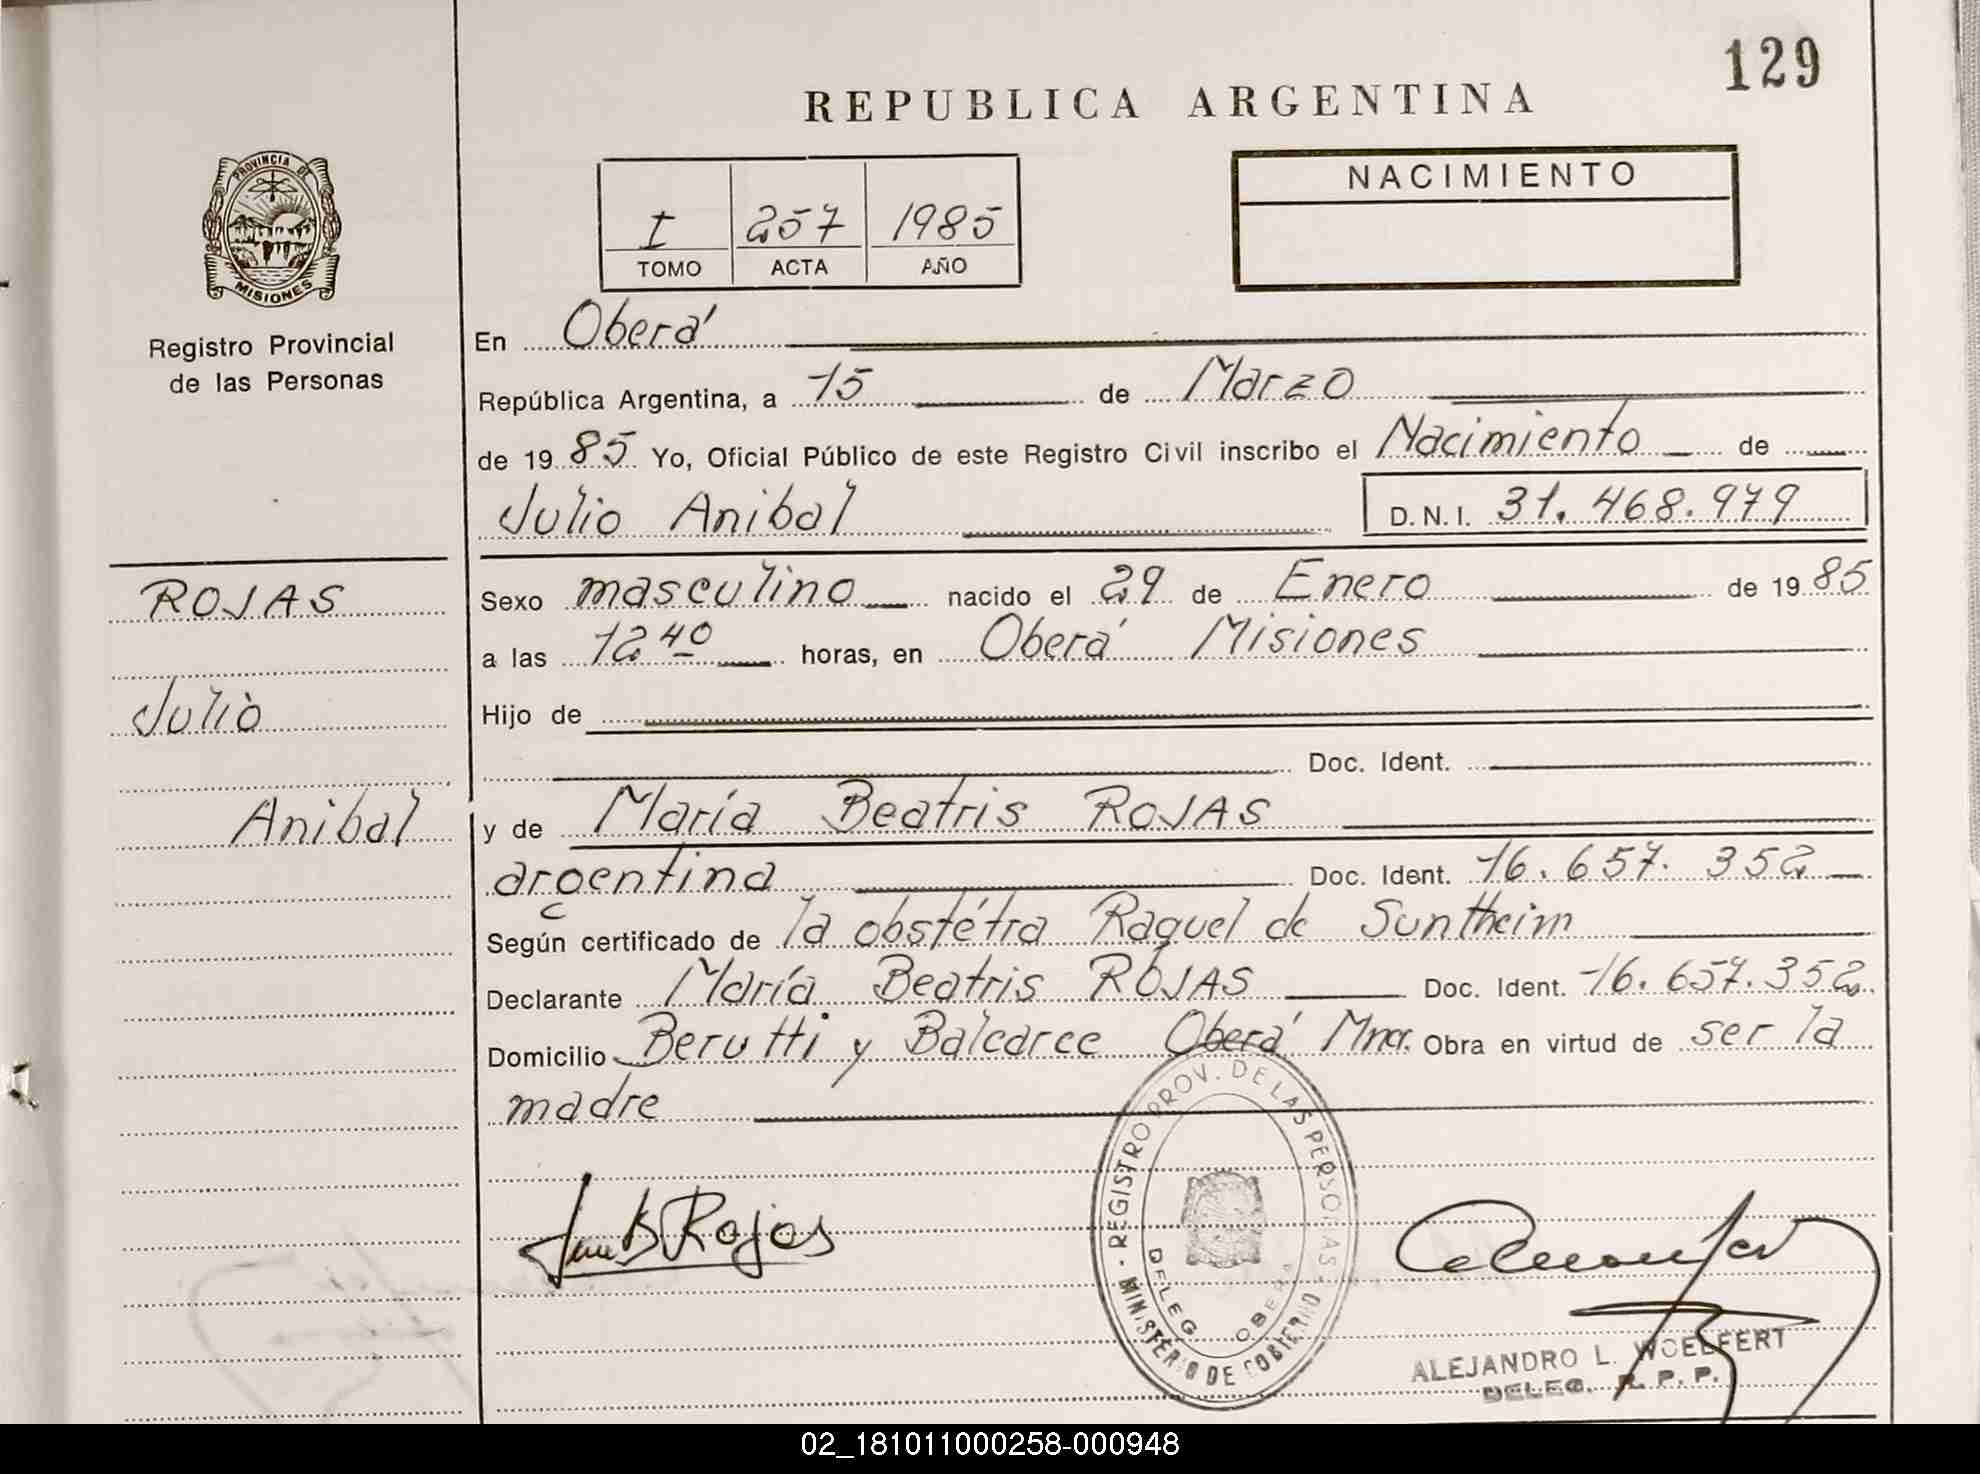 129
REPUBLICA ARGENTINA
PROVINCIA DE
MISIONES
Registro Provincial
de las Personas
I 257 1985
TOMO ACTA AÑO
NACIMIENTO
En Oberá
República Argentina, a 15 de Marzo
de 1985 Yo, Oficial Público de este Registro Civil inscribo el Nacimiento de
Julio Anibal D.N.I. 31.468.979
ROJAS
Julio
Anibal
Sexo masculino nacido el 29 de Enero de 1985
a las 12 40 horas, en Oberá Misiones
Hijo de
Doc. Ident.
y de María Beatris ROJAS
argentina Doc. Ident. 16.657.352
Según certificado de la obstétra Raquel de Suntheim
Declarante María Beatris ROJAS Doc. Ident. 16.657.352
Domicilio Berutti y Balcarce Oberá Mnes. Obra en virtud de ser la
madre
B Rojas
REGISTRO PROV. DE LAS PERSONAS
MINISTERIO DE GOBIERNO
DELEG OBERA
ALEJANDRO L. WOELFERT
DELEG. R. P. P.
02_181011000258-000948